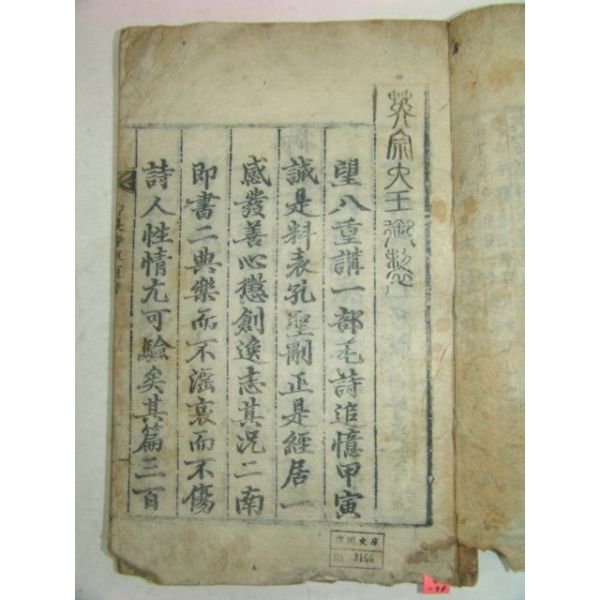 英宗大王御製
望八重講一部毛詩追憶甲寅
誠是料表孔聖刪正是經居一
感發善心懲創逸志其況二南
即書二典樂而不淫哀而不傷
詩人性情尤可驗矣其篇三百
文庫
3166